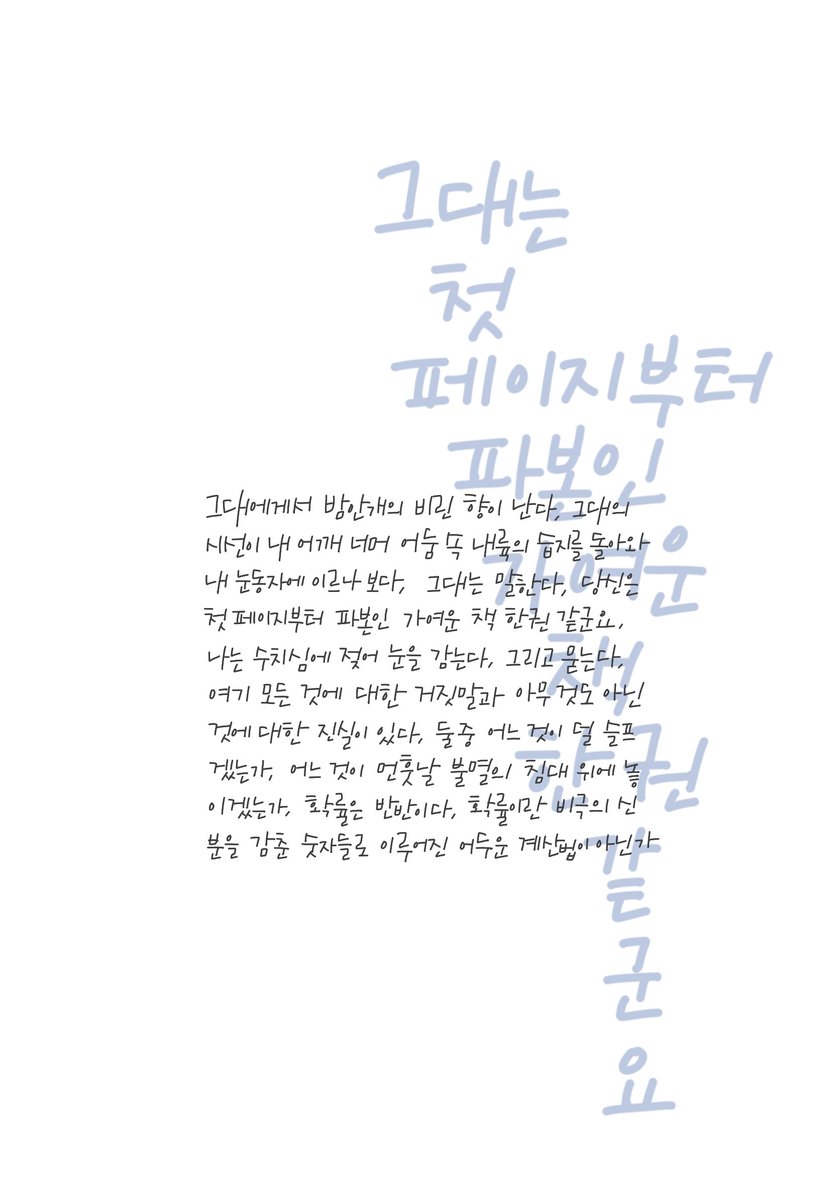 그대는
첫
페이지부터
파본인
가여운
책
한권
같
군
요
그대에게서 밤안개의 비린 향이 난다, 그대의
시선이 내 어깨 너머 어둠 속 내륙의 습지를 돌아와
내 눈동자에 이르나 보다, 그대는 말한다, 당신은
첫 페이지부터 파본인 가여운 책 한권 같군요,
나는 수치심에 젖어 눈을 감는다, 그리고 묻는다,
여기 모든 것에 대한 거짓말과 아무 것도 아닌
것에 대한 진실이 있다, 둘 중 어느 것이 덜 슬프
겠는가, 어느 것이 먼 훗날 불멸의 침대 위에 놓
이겠는가, 확률은 반반이다, 확률이란 비극의 신
분을 감춘 숫자들로 이루어진 어두운 계산법이 아닌가